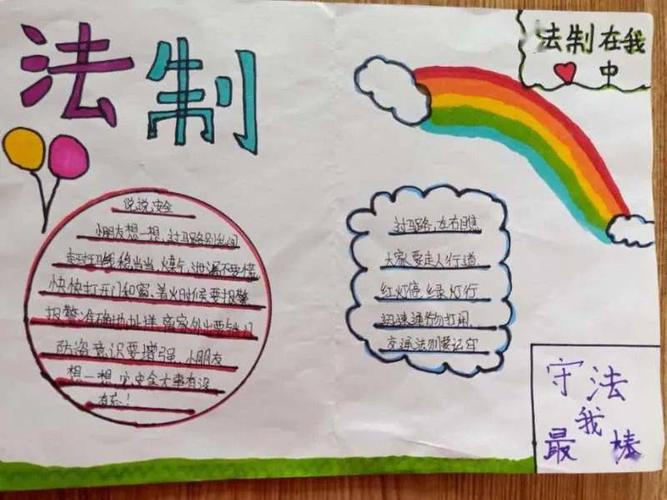 法制
法制在我
中
说说安全
小朋友想一想,过马路别出
走斑马线稳当当,
快快打开门和窗,着火时候要报警
报警准确地址详,离家外出要
防盗意识要增强,小朋友
想一想,安全大事有没
有忘!
过马路,左右瞧
大家要走人行道
红灯停,绿灯行
交通法则要记牢
守法
我
最棒